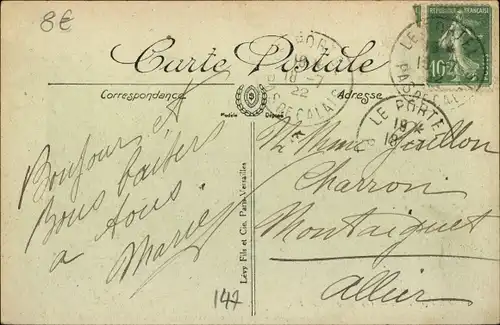 8€
Carte Postale
Correspondance
Adresse
Modèle Déposé
RÉPUBLIQUE FRANÇAISE
10
LE PORTEL
PAS DE CALAIS
LE PORTEL
18
22
PAS DE CALAIS
LE PORTEL
18
Bonjour et
Bons baisers
à tous.
Marie
M. Mme
Charron
Montaiguet
Allier
Lévy Fils et Cie, Paris-Versailles
147